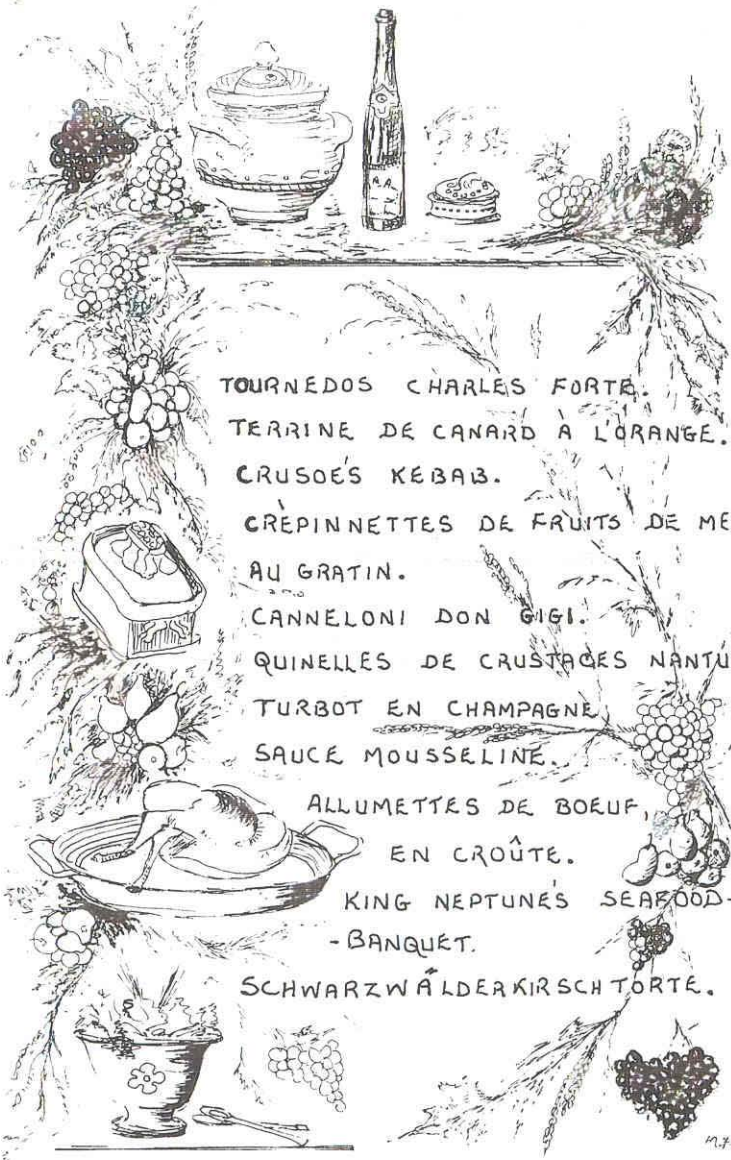 TOURNEDOS CHARLES FORTE.
TERRINE DE CANARD À L'ORANGE.
CRUSOE'S KEBAB.
CRÈPINNETTES DE FRUITS DE ME
AU GRATIN.
CANNELONI DON GIGI.
QUINELLES DE CRUSTACES NANTU
TURBOT EN CHAMPAGNE
SAUCE MOUSSELINE.
ALLUMETTES DE BOEUF,
EN CROÛTE.
KING NEPTUNE'S SEAFOOD-
-BANQUET.
SCHWARZWÄLDERKIRSCHTORTE.